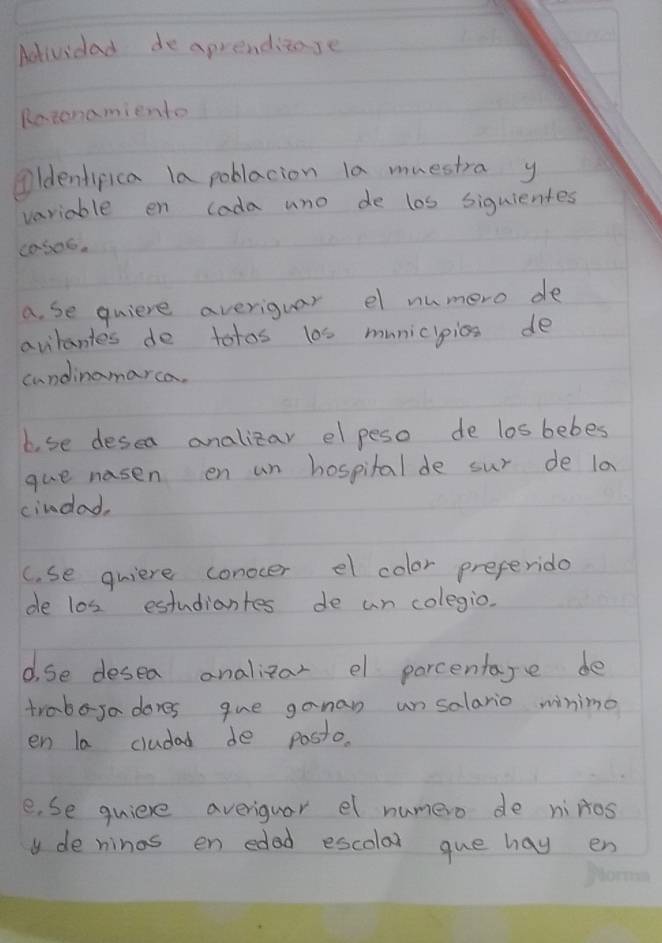 Actividad de aprendizaje
Razonamiento
① Identifica la poblacion la muestra y
variable en cada uno de los siguientes
casos.
a. se quiere averiguar el numero de
avitantes de totos los municipios de
cundinamarca.
b. se desea analizar el peso de los bebes
que nasen en un hospital de sur de la
ciudad.
c. se quiere conocer el color preferido
de los estudiantes de un colegio.
d. se desea analizar el porcentaje de
trabajadores que ganan un salario minimo
en la ciudad de posto.
e. se quiere averiguar el numero de niños
y de ninas en edad escolar que hay en
Norma